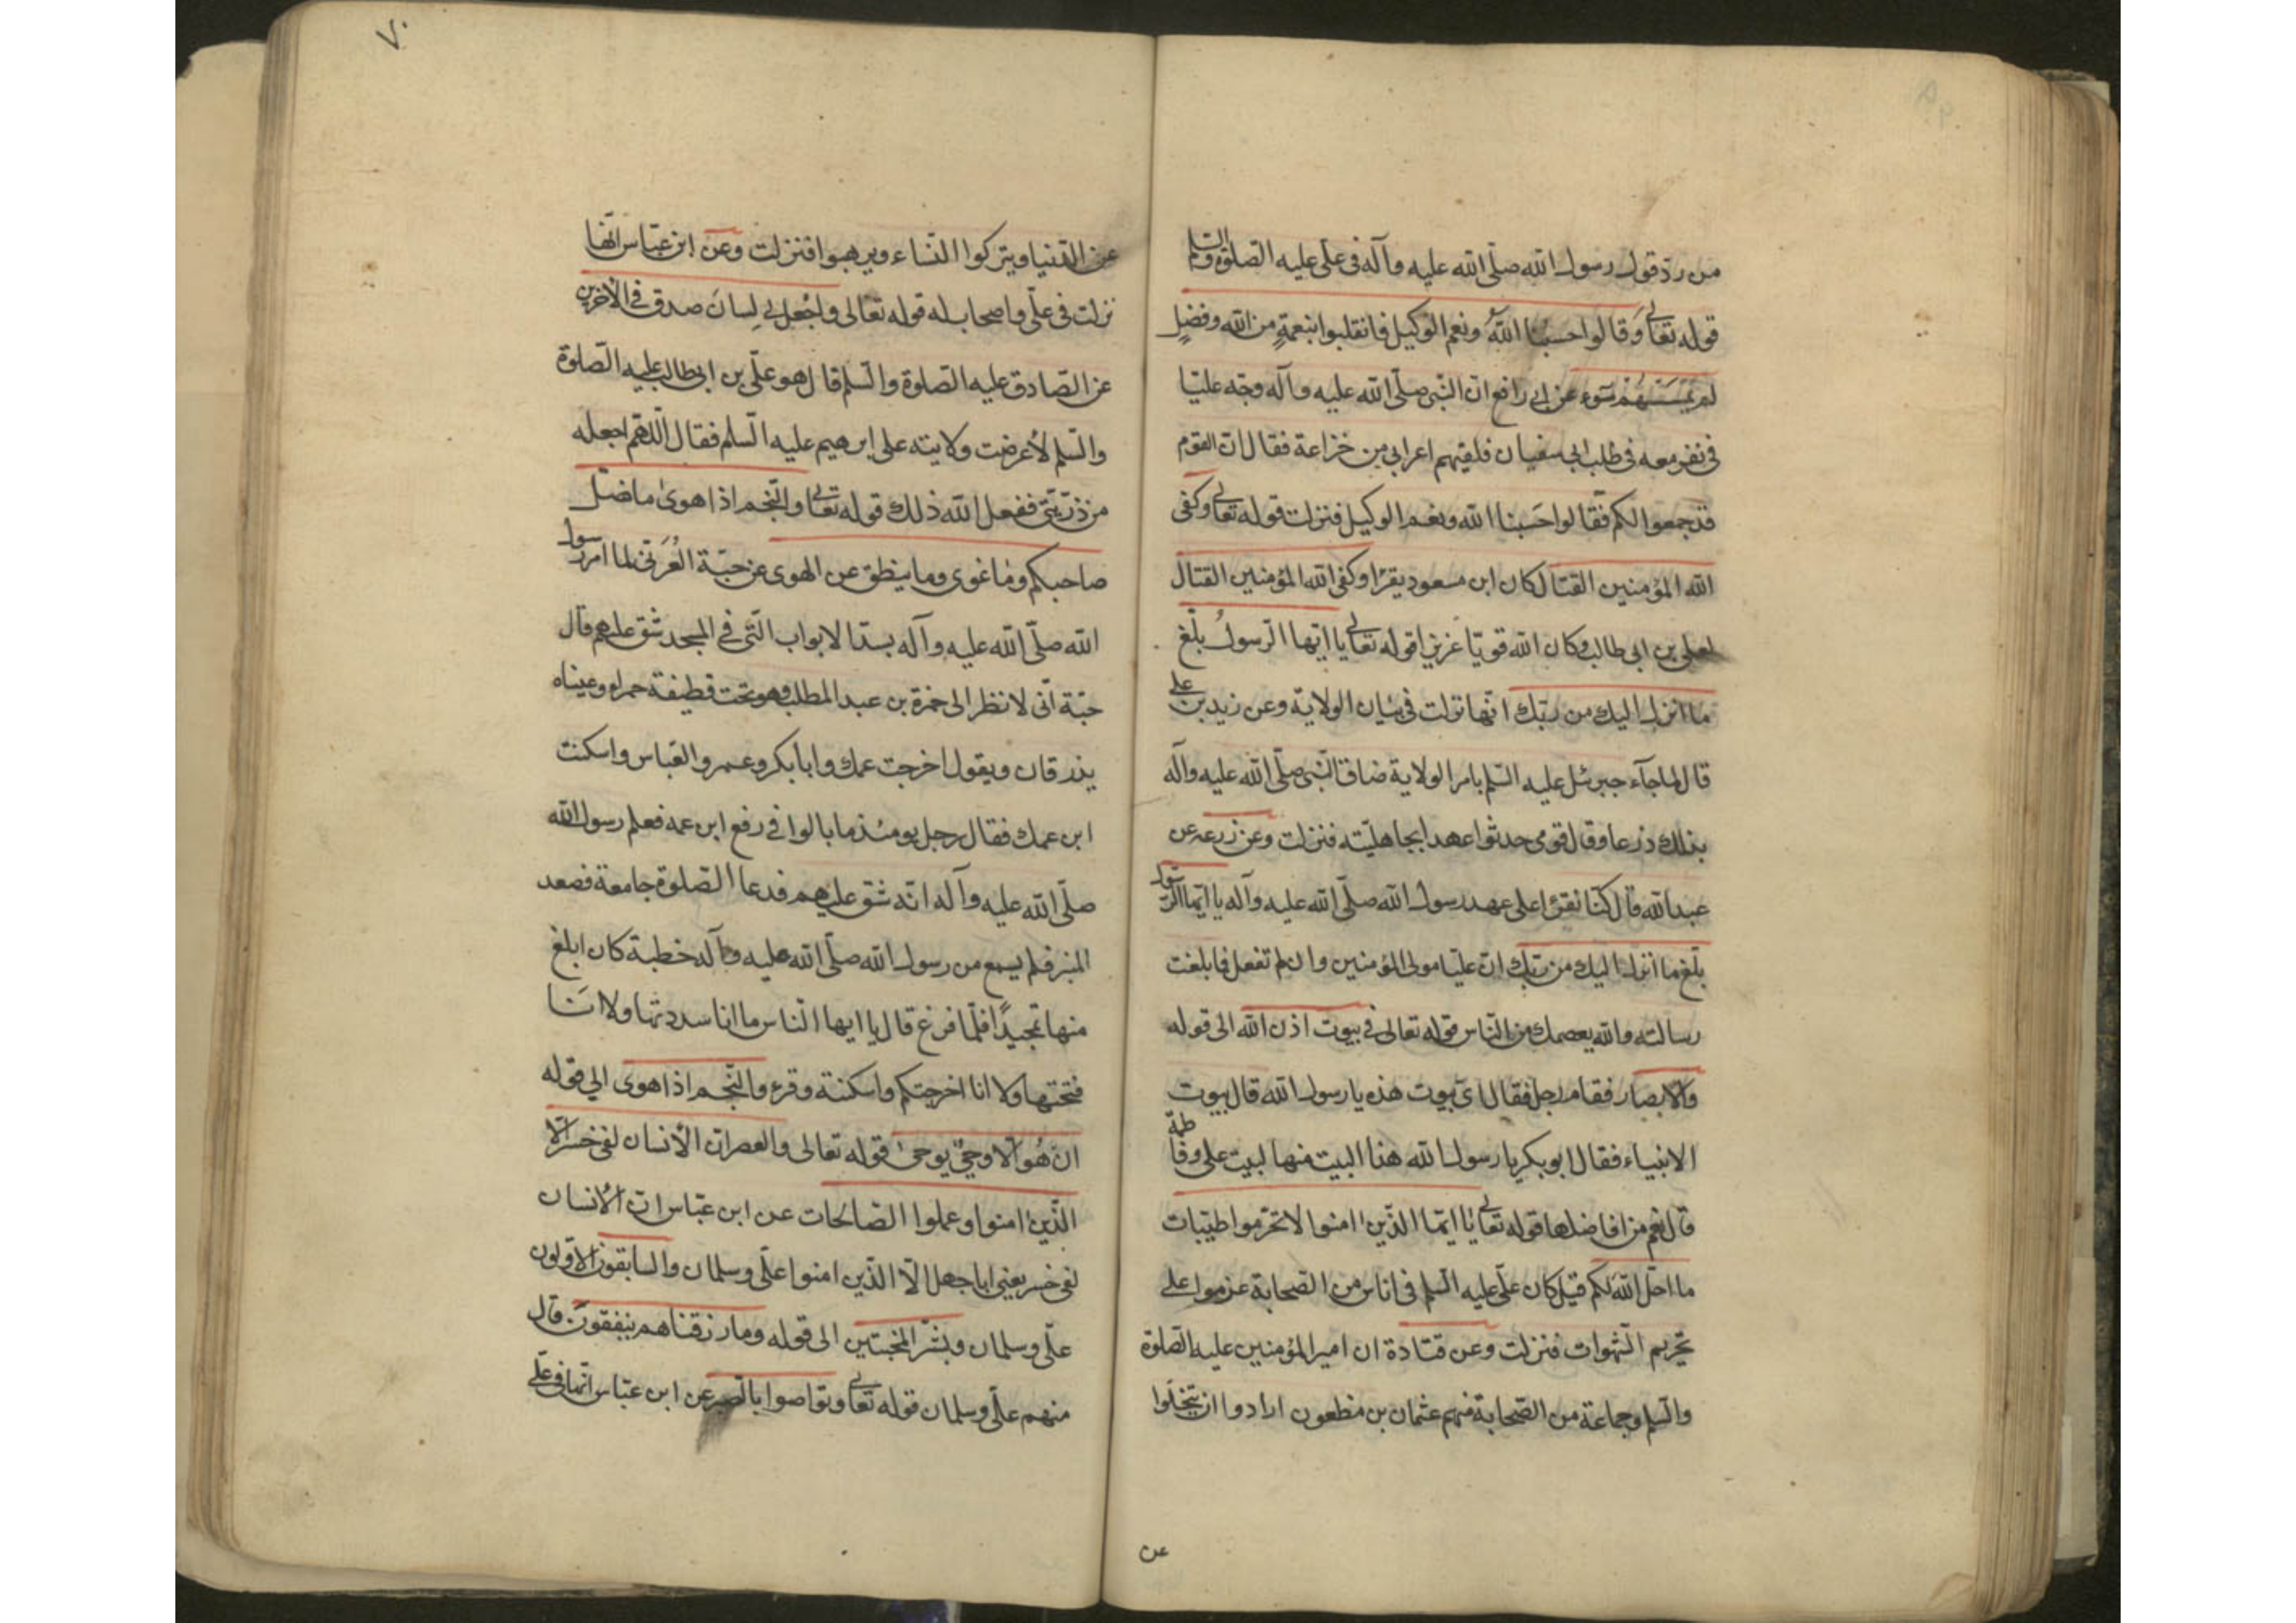 من رد قول رسول الله صلّى الله عليه وآله فى على عليه الصلوة والسلم
قوله تعالى وَقالوا حسبُنا اللّهُ ونعم الوكيل فانقلبوا بنعمةٍ من الله وفضلٍ
لم يَمْسَسْهُمْ سُوء عن ابى رافع ان النّبى صلّى الله عليه وآله وجّه عليّا
فى نفر معه فى طلب ابى سفيان فلقيهم اعرابى من خزاعة فقال ان القوم
قد جمعوا لكم فقالوا حَسبنا الله ونعم الوكيل فنزلت قوله تعالى وكفى
الله المؤمنين القتال كان ابن مسعود يقرا وكفى الله المؤمنين القتال
لعلى بن ابى طالب وكان الله قويّا عزيزا قوله تعالى يا ايّها الرّسولُ بلّغ
ما انزل اليك من ربّك انّها نزلت فى بيان الولاية وعن زيد بن على
قال لما جآء جبرئل عليه السّلم بامر الولاية ضاق النّبى صلّى الله عليه وآله
بذلك ذرعا وقال قومى حدثوا عهد ابجاهليّته فنزلت وعن زرعه عن
عبد الله قال كنّا نقرؤا على عهد رسول الله صلّى الله عليه وآله يا ايّها الرّسول
بلّغ ما انزل اليك من ربّك انّ عليّا مولى المؤمنين وان لم تفعل فما بلغت
رسالته والله يعصمك من النّاس قوله تعالى فى بيوت اذن الله الى قوله
والابصار فقام رجل فقال اىّ بيوت هذه يا رسول الله قال بيوت
الانبياء فقال ابو بكر يا رسول الله هذا البيت منها لبيت على وفاطمة
قال نعم من افاضلها قوله تعالى يا ايّها الذّين امنوا لا تحرّموا طيّبات
ما احلّ الله لكم قيل كان علّى عليه السّلم فى اناس من الصّحابة عزموا على
تحريم الشّهوات فنزلت وعن قتادة ان امير المؤمنين عليه الصّلوة
والسّلم وجماعة من الصّحابة منهم عثمان بن مظعون ارادوا ان يتخلّوا
عن
٧٠
عن الدّنيا ويتركوا النّساء ويرهبوا فنزلت وعن ابن عبّاس انّها
نزلت فى علّى واصحاب له قوله تعالى واجْعل لى لِسانَ صدق فى الآخرين
عن الصّادق عليه الصّلوة والسّلم قال هو علّى بن ابى طالب عليه الصّلوة
والسّلم لأعرضت ولايته على ابرهيم عليه السّلم فقال اللّهم اجعله
من ذرّيّتى ففعل الله ذلك قوله تعالى والنّجم اذا هوى ما ضلّ
صاحبكم وما غوى وما ينطق عن الهوى عن حبّة العُرَنى لما امر رسول
الله صلّى الله عليه وآله بسدّ الابواب التّى فى المسجد شق عليهم قال
حبّة انّى لانظر الى حمزة بن عبد المطلب وهو تحت قطيفة حمراء وعيناه
يذرقان ويقول اخرجت عمك وابا بكر وعمر والعبّاس واسكنت
ابن عمك فقال رجل يومئذ ما بالوا فى رفع ابن عمه فعلم رسول الله
صلّى الله عليه وآله انّه شق عليهم فدعا الصّلوة جامعة فصعد
المنبر فلم يسمع من رسول الله صلّى الله عليه وآله خطبة كان ابلغ
منها تمجيدًا فلمّا فرغ قال يا ايها النّاس ما انا سددتها ولا انَا
فتحتها ولا انا اخرجتكم واسكنته وقرء والنّجم اذا هوى الى قوله
ان هُوَ الّا وحيٌ يوحى قوله تعالى والعصر ان الأنسان لفى خسر الّا
الذّين امنوا وعملوا الصّالحات عن ابن عبّاس انّ الأنسان
لفى خسر يعنى ابا جهل الّا الذّين امنوا علّى وسلمان والسابقون الاوّلون
علّى وسلمان وبشّر المخبتين الى قوله ومما رزقناهم ينفقون قال
منهم علّى وسلمان قوله تعالى وتواصوا بالصّبر عن ابن عبّاس انّها فى علّى